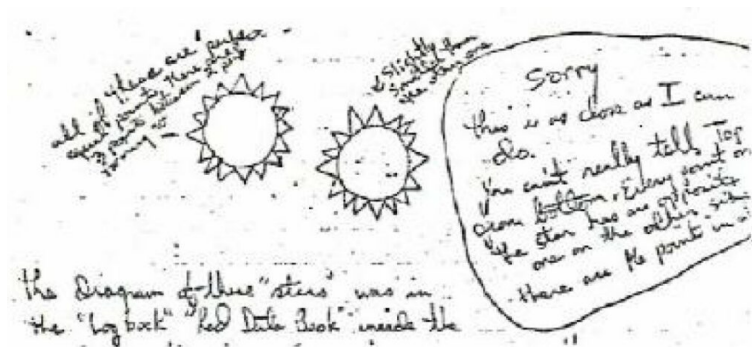 all of these are perfect
equal points, there are
points between
slightly
smaller from
the other one
Sorry
this is as close as I can
do.
you can't really tell Top
from bottom. Every point on
the star has an opposite
one on the other side
there are 16 points in a
the Diagram of these "stars" was in
the "Log book" "Red Data Book" inside the